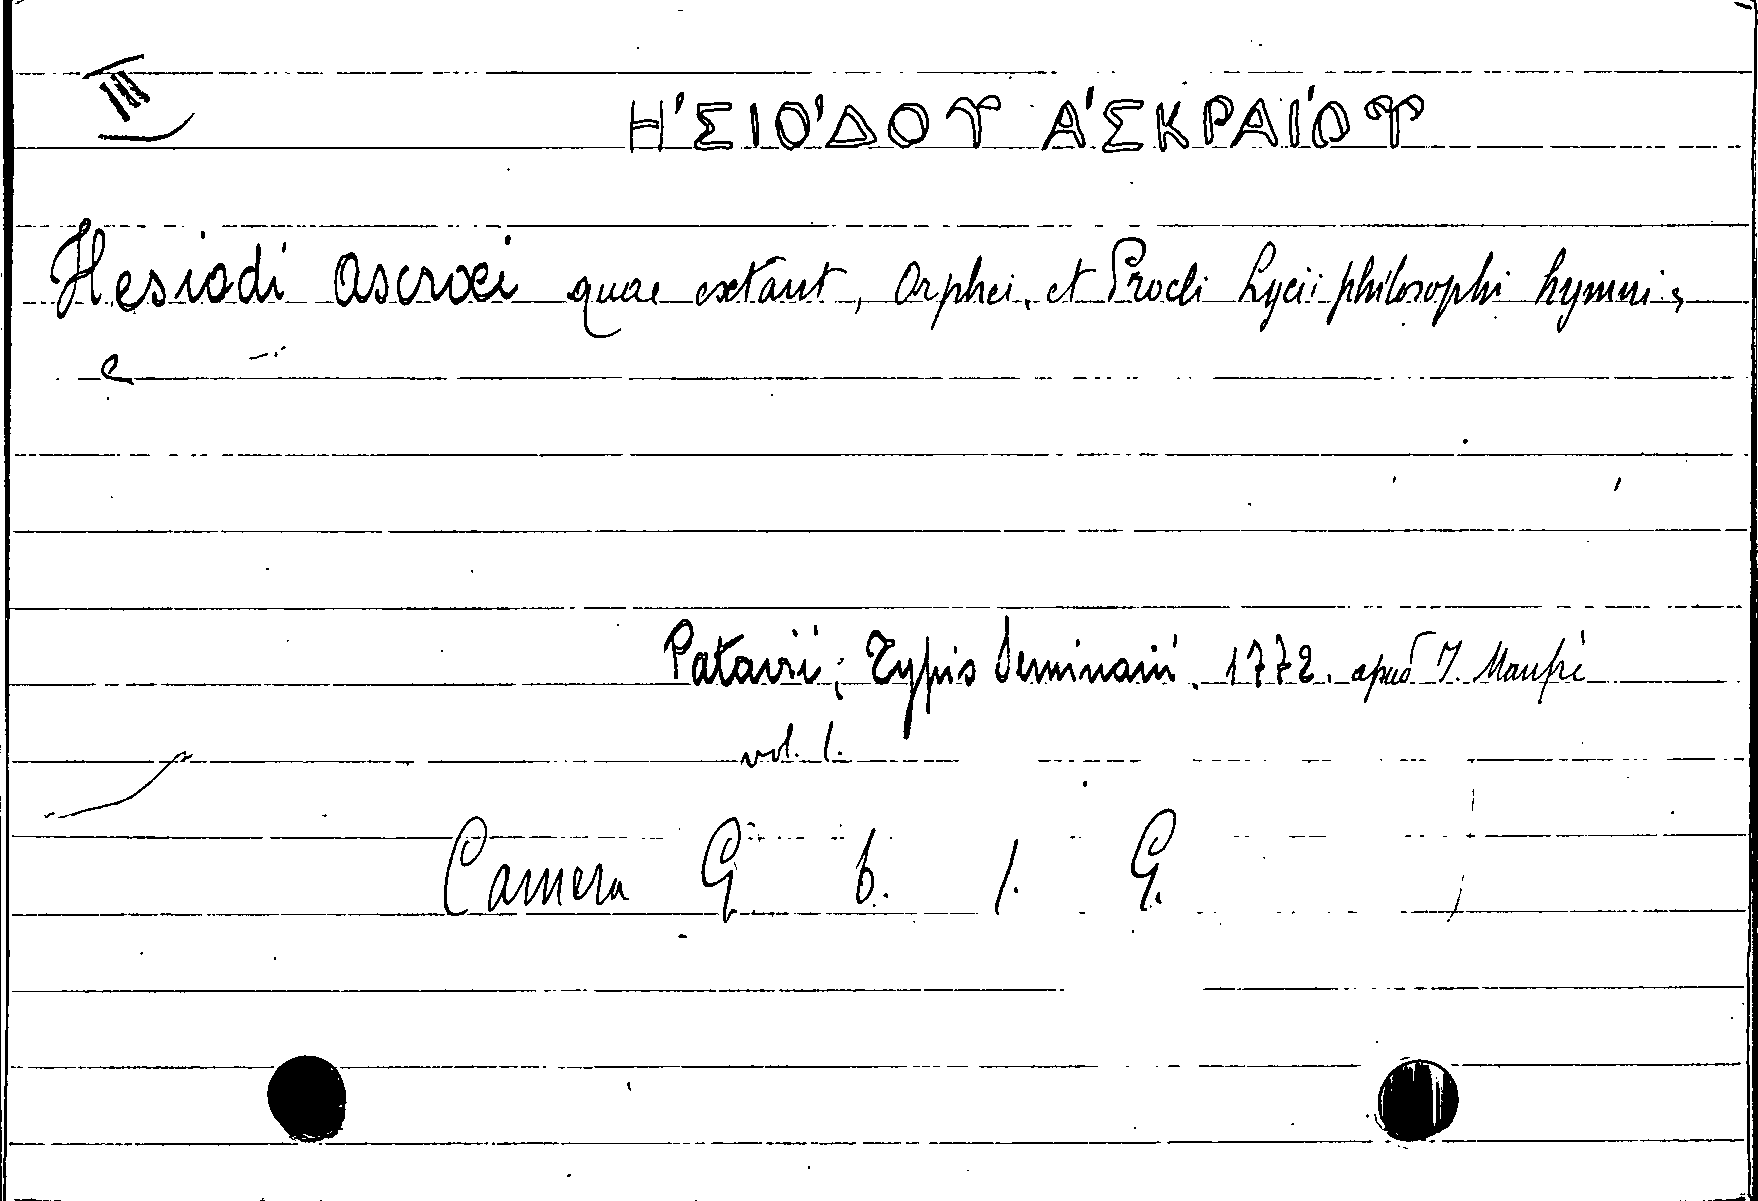 III
Η'ΣΙΟ'ΔΟΥ Α'ΣΚΡΑΙ'ΟΥ
Hesiodi Ascraei quae extant, Orphei, et Procli Lycii philosophi hymni,
Patavii; Typis Seminarii. 1772. apud J. Manfrè
vol. 1.
Camera G 6. 1. G.